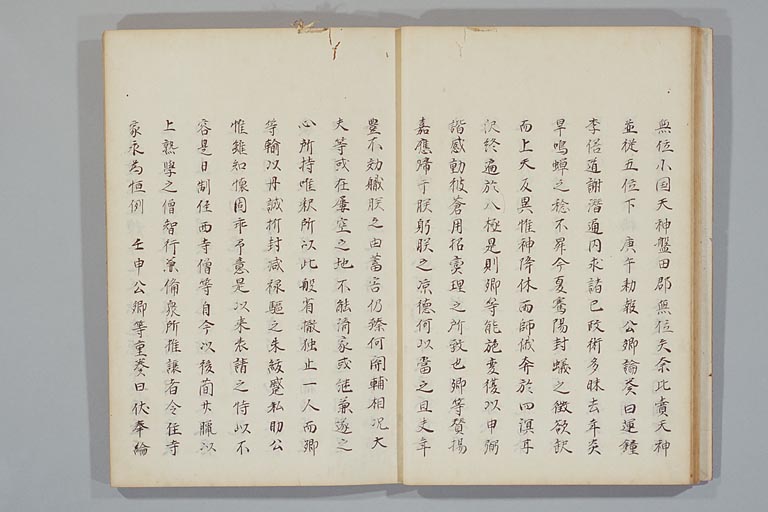 無位小国天神盤田郡無位矢奈比賣天神
並從五位下　庚午勅報公卿論奏曰運鐘
季俗道謝潛通内求諸已政術多昧去年炎
旱鳴蟬之稔不昇今夏驚陽封蟻之徵欲訳
而上天反異惟神降休雨師俄奔於四溟耳
沢終遍於八極是則卿等能施变復以申弼
諧感動彼蒼用招爕理之所致也卿等賛揚
嘉應歸于朕躬朕之凉德何以當之且支年
豊不効職朕之由蓄害仍臻何開輔相况大
夫等或在屢空之地不能済家或継兼遂之
心所持唯釈所以此般省撤独止一人而卿
等輸以丹誠折封減禄驅之朱紱蹙私助公
惟雖知懐固乖予意是以来表請之侍以不
容是日制任西寺僧等自今以後簡廿臘以
上熟學之僧智行兼倫衆所推讓者令任寺
家永為恒例　壬申公卿等重奏曰伏奉綸